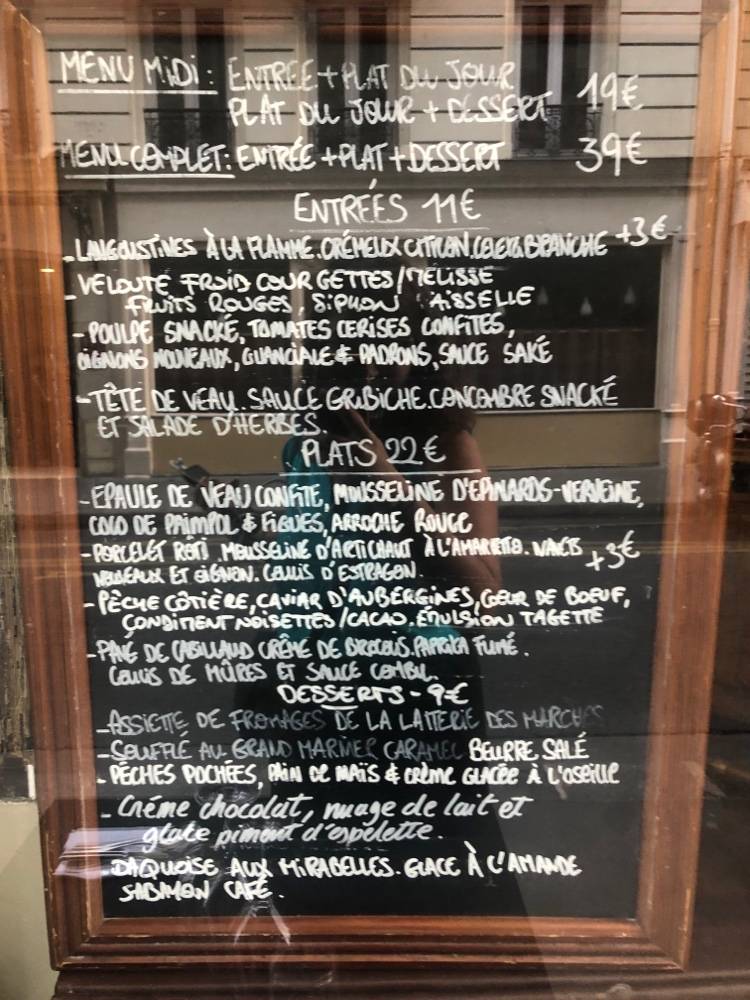 MENU MIDI : ENTREE + PLAT DU JOUR
PLAT DU JOUR + DESSERT 19€
MENU COMPLET : ENTRÉE + PLAT + DESSERT 39€
ENTRÉES 11€
- LANGOUSTINES À LA FLAMME. CRÉMEUX CITRON. CELERI BRANCHE +3€
- VELOUTÉ FROID COURGETTES/MELISSE
FRUITS ROUGES, SIPHON FAISSELLE
- POULPE SNACKÉ, TOMATES CERISES CONFITES,
OIGNONS NOUVEAUX, GUANCIALE & PADRONS, SAUCE SAKÉ
- TÊTE DE VEAU. SAUCE GRIBICHE. CONCOMBRE SNACKÉ
ET SALADE D'HERBES.
PLATS 22€
- EPAULE DE VEAU CONFITE, MOUSSELINE D'EPINARDS-VERVEINE,
COCO DE PAIMPOL & FIGUES, ARROCHE ROUGE
- PORCELET RÔTI. MOUSSELINE D'ARTICHAUT À L'AMARETTO. NAVETS +3€
NOUVEAUX ET OIGNON. COULIS D'ESTRAGON.
- PÊCHE CÔTIÈRE, CAVIAR D'AUBERGINES, COEUR DE BOEUF,
CONDIMENT NOISETTES/CACAO. ÉMULSION TAGETTE
- PAVÉ DE CABILLAUD CRÈME DE BROCOLIS. PAPRIKA FUMÉ.
COULIS DE MÛRES ET SAUCE COMBU.
DESSERTS - 9€
- ASSIETTE DE FROMAGES DE LA LAITERIE DES MARCHES
- SOUFFLÉ AU GRAND MARINER CARAMEL BEURRE SALÉ
- PÊCHES POCHÉES, PAIN DE MAÏS & CRÈME GLACÉE À L'OSEILLE
- Crème chocolat, nuage de lait et
glace piment d'espelette.
DAQUOISE AUX MIRABELLES. GLACE À L'AMANDE
SABAYON CAFÉ.